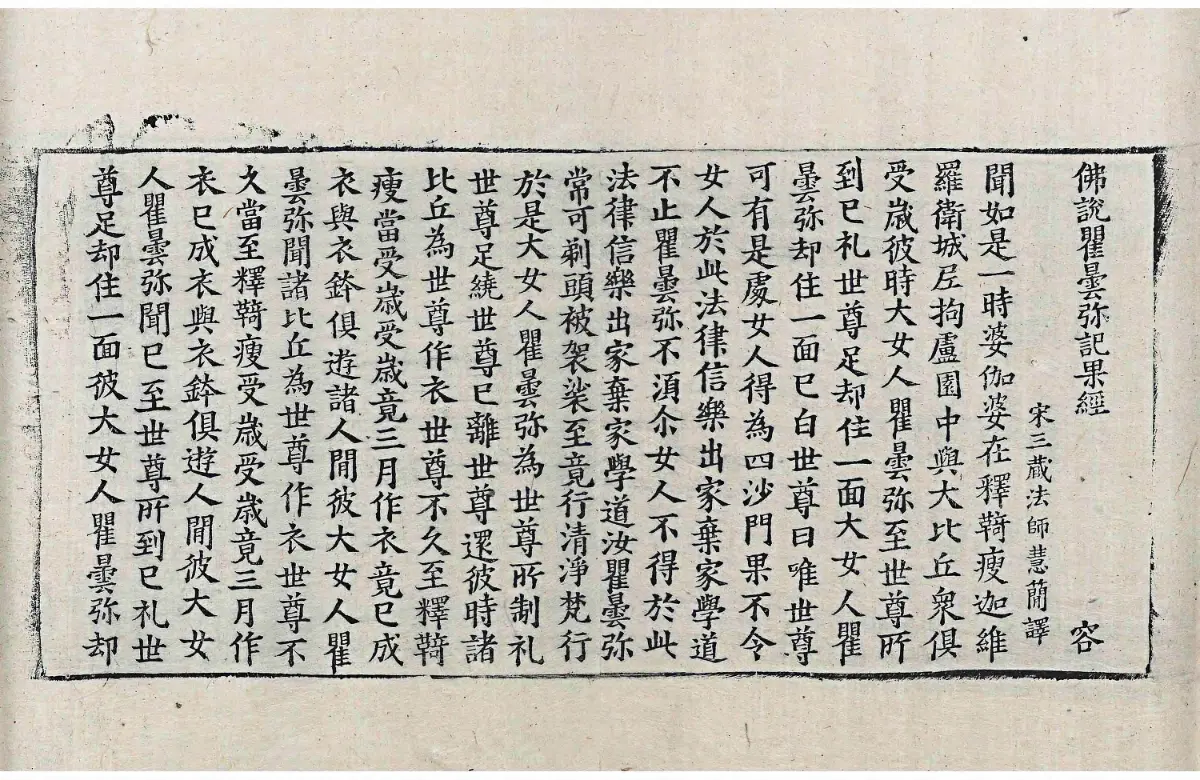 佛說瞿曇弥記果經 容
宋三藏法師慧蕳譯
聞如是一時婆伽婆在釋𩌏瘦迦維
羅衛城𡰱拘盧園中與大比丘衆俱
受嵗彼時大女人瞿曇弥至世尊所
到已礼世尊足却住一面大女人瞿
曇弥却住一面已白世尊曰唯世尊
可有是處女人得為四沙門果不令
女人於此法律信樂出家棄家學道
不止瞿曇弥不湏尒女人不得於此
法律信樂出家棄家學道汝瞿曇弥
常可剃頭被袈裟至竟行清淨梵行
於是大女人瞿曇弥為世尊所制礼
世尊足繞世尊已離世尊還彼時諸
比丘為世尊作衣世尊不久至釋𩌏
瘦當受嵗受嵗竟三月作衣竟已成
衣與衣鉢俱遊諸人間彼大女人瞿
曇弥聞諸比丘為世尊作衣世尊不
久當至釋𩌏瘦受嵗受嵗竟三月作
衣已成衣與衣鉢俱遊人間彼大女
人瞿曇弥聞已至世尊所到已礼世
尊足却住一面彼大女人瞿曇弥却